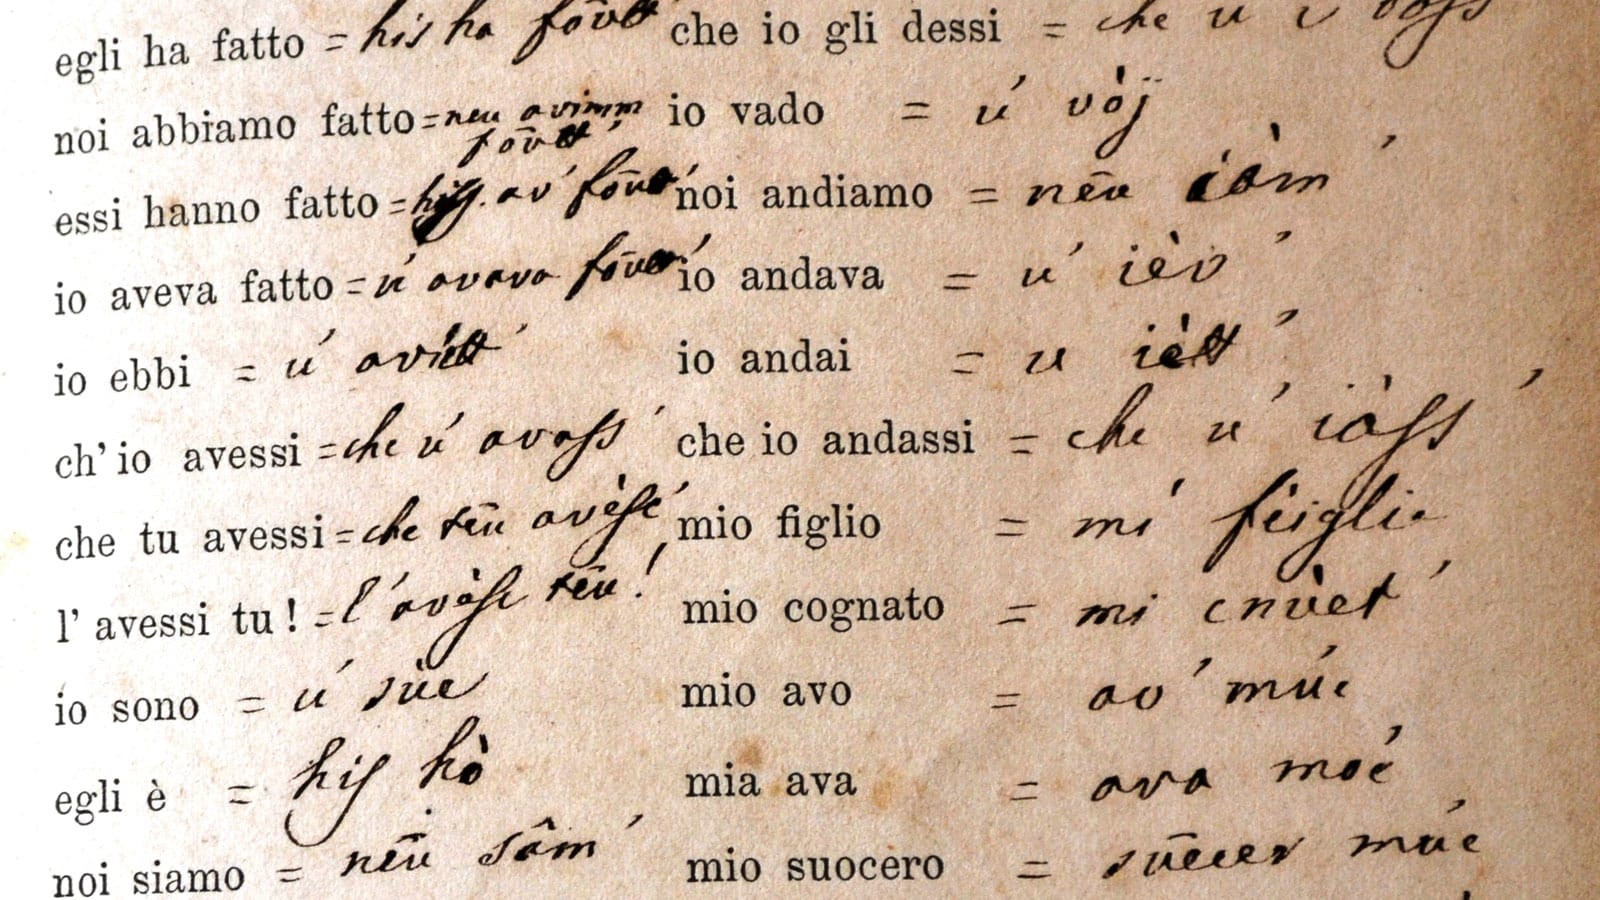 egli ha fatto = his ha fōvtt
noi abbiamo fatto = neu avimm
fōvtt'
essi hanno fatto = av' fōvtt'
io aveva fatto = u' avava fōvtt'
io ebbi = u' avètt'
ch'io avessi = che u' avass'
che tu avessi = che tēu avèss'
l'avessi tu! = l'avèss tēu!
io sono = u' sùe
egli è = his hò
noi siamo = nēu sâm'
che io gli dessi = che u
io vado = u' vòj
noi andiamo = nēu iòm'
io andava = u' ièv'
io andai = u iètt'
che io andassi = che u' iàss'
mio figlio = mi' fèiglie
mio cognato = mi cnùet'
mio avo = av' múe
mia ava = ava moé
mio suocero = sūecer múe